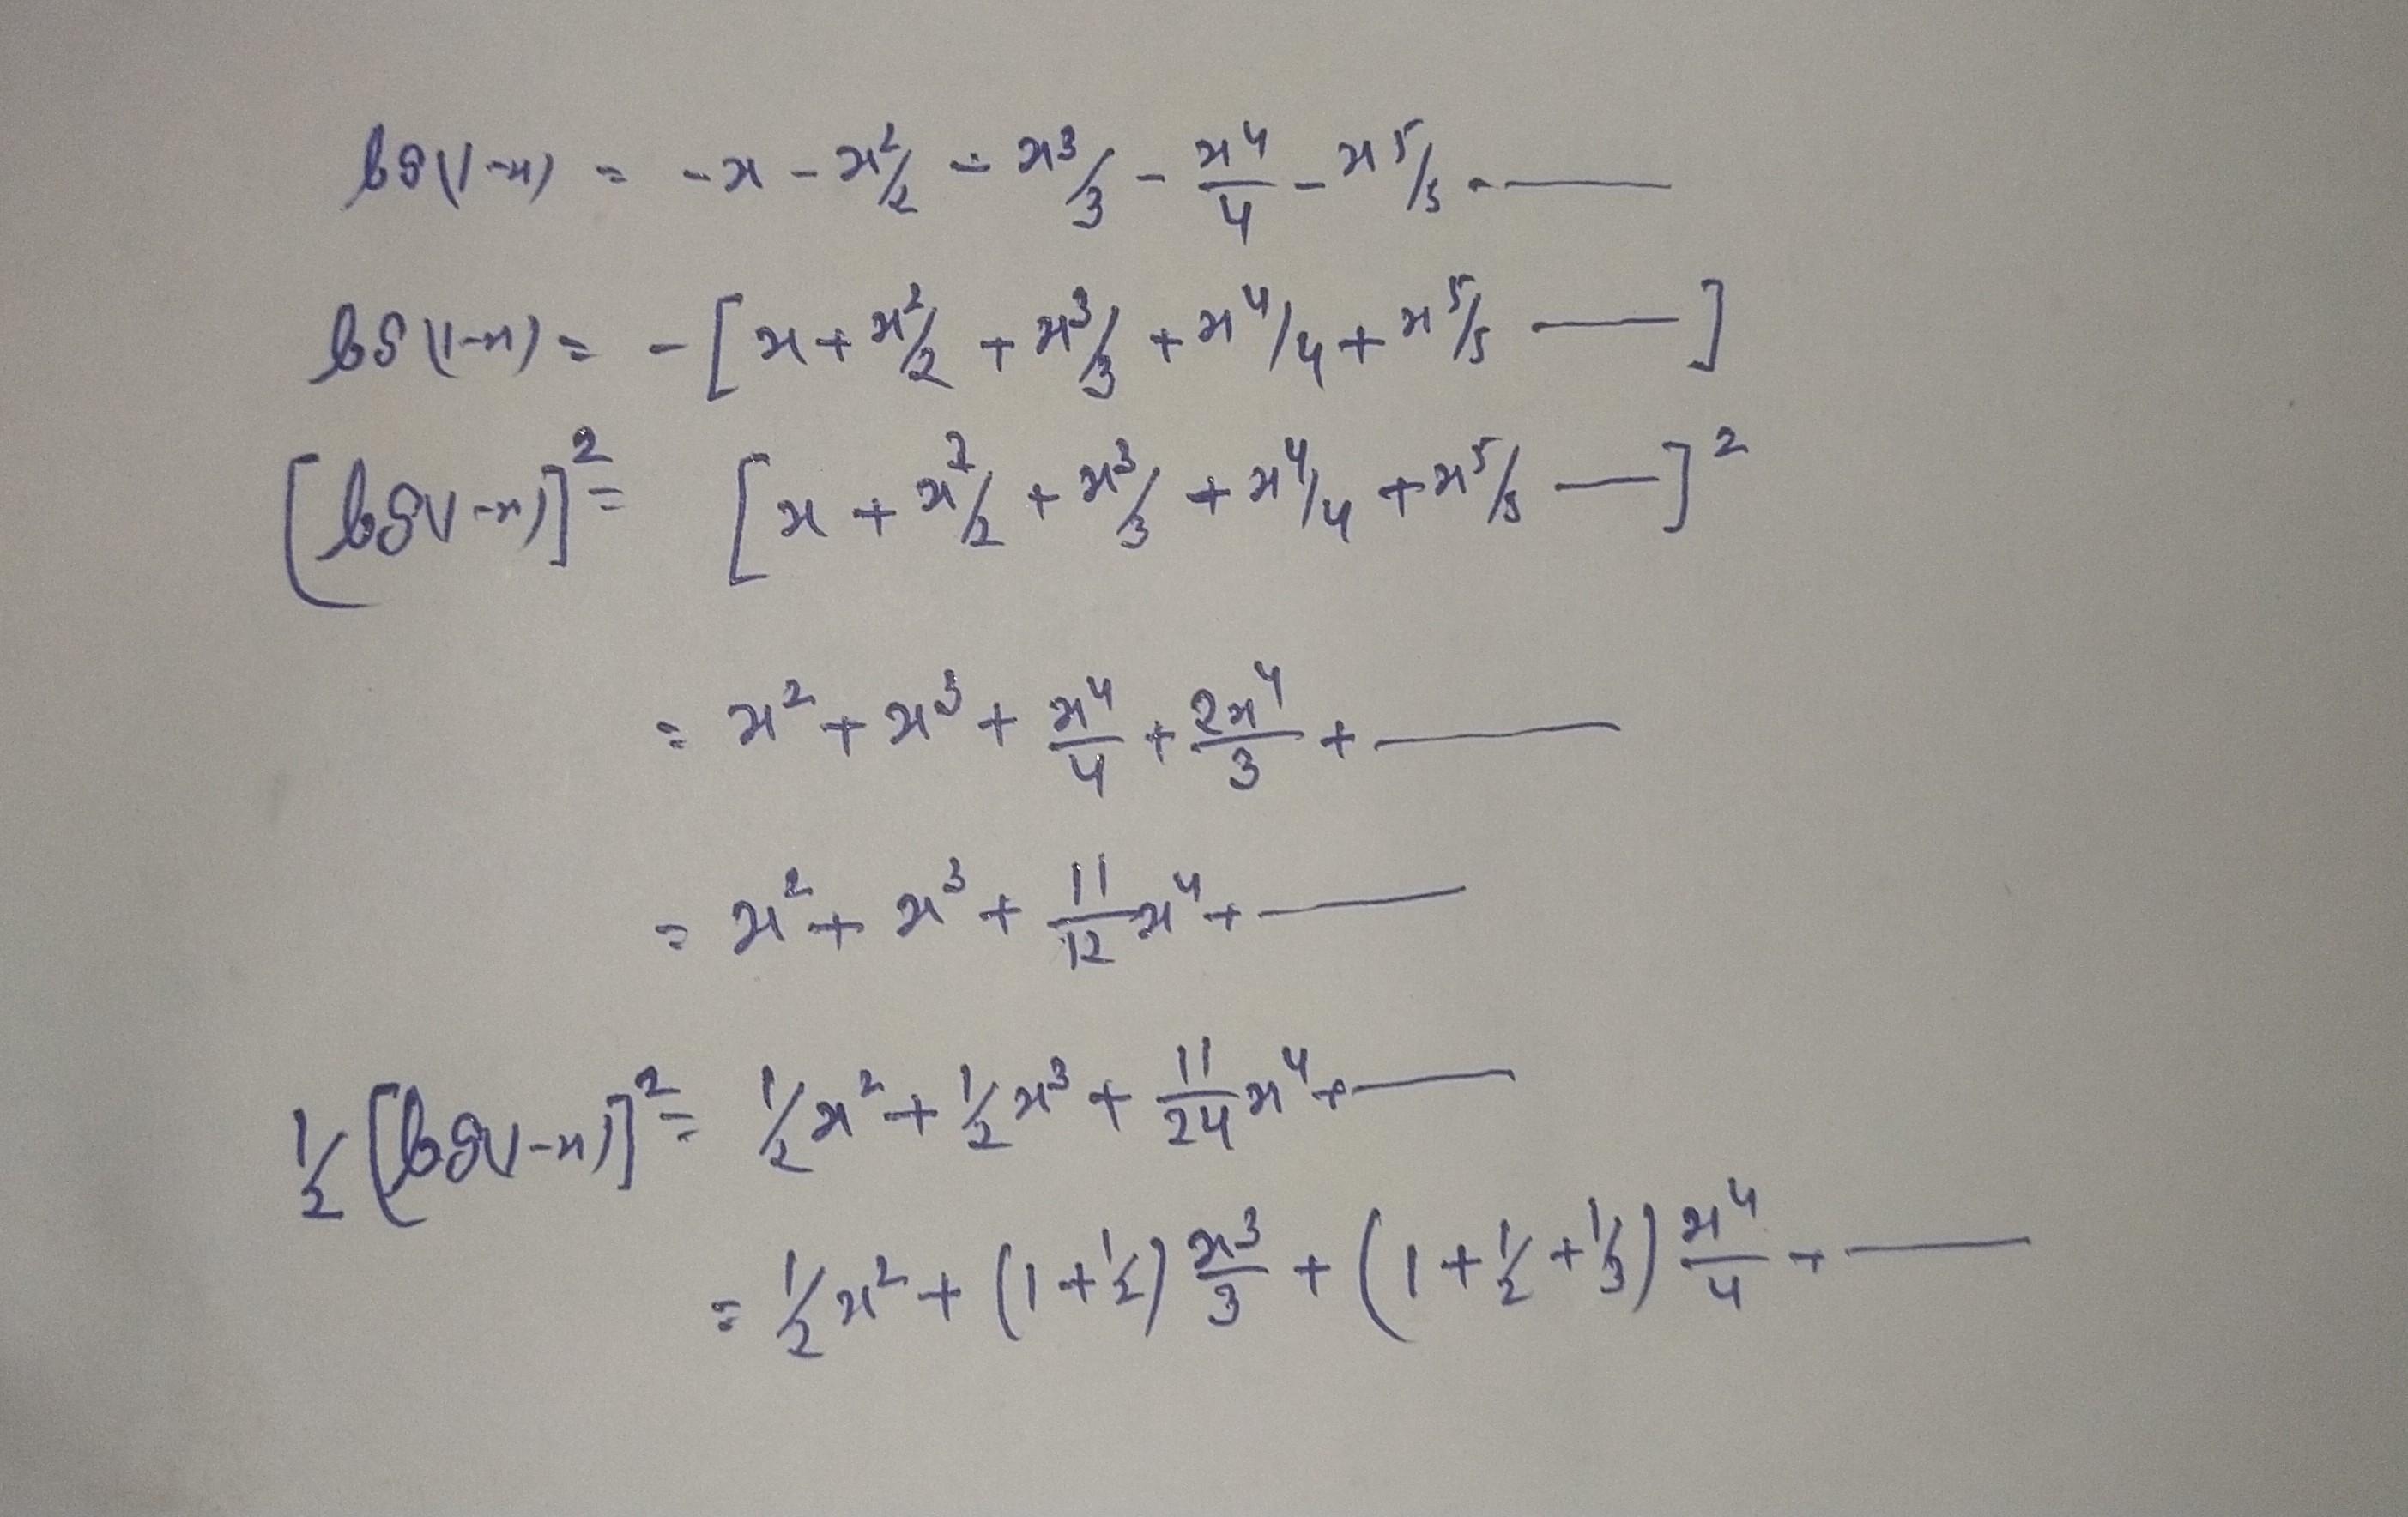 log(1-x) = -x - x²/2 - x³/3 - x⁴/4 - x⁵/5 - ——
log(1-x) = -[x + x²/2 + x³/3 + x⁴/4 + x⁵/5 ——]
[log(1-x)]² = [x + x²/2 + x³/3 + x⁴/4 + x⁵/5 ——]²
= x² + x³ + x⁴/4 + 2x⁴/3 + ——
= x² + x³ + 11/12 x⁴ + ——
1/2 [log(1-x)]² = 1/2 x² + 1/2 x³ + 11/24 x⁴ + ——
= 1/2 x² + (1 + 1/2) x³/3 + (1 + 1/2 + 1/3) x⁴/4 + ——